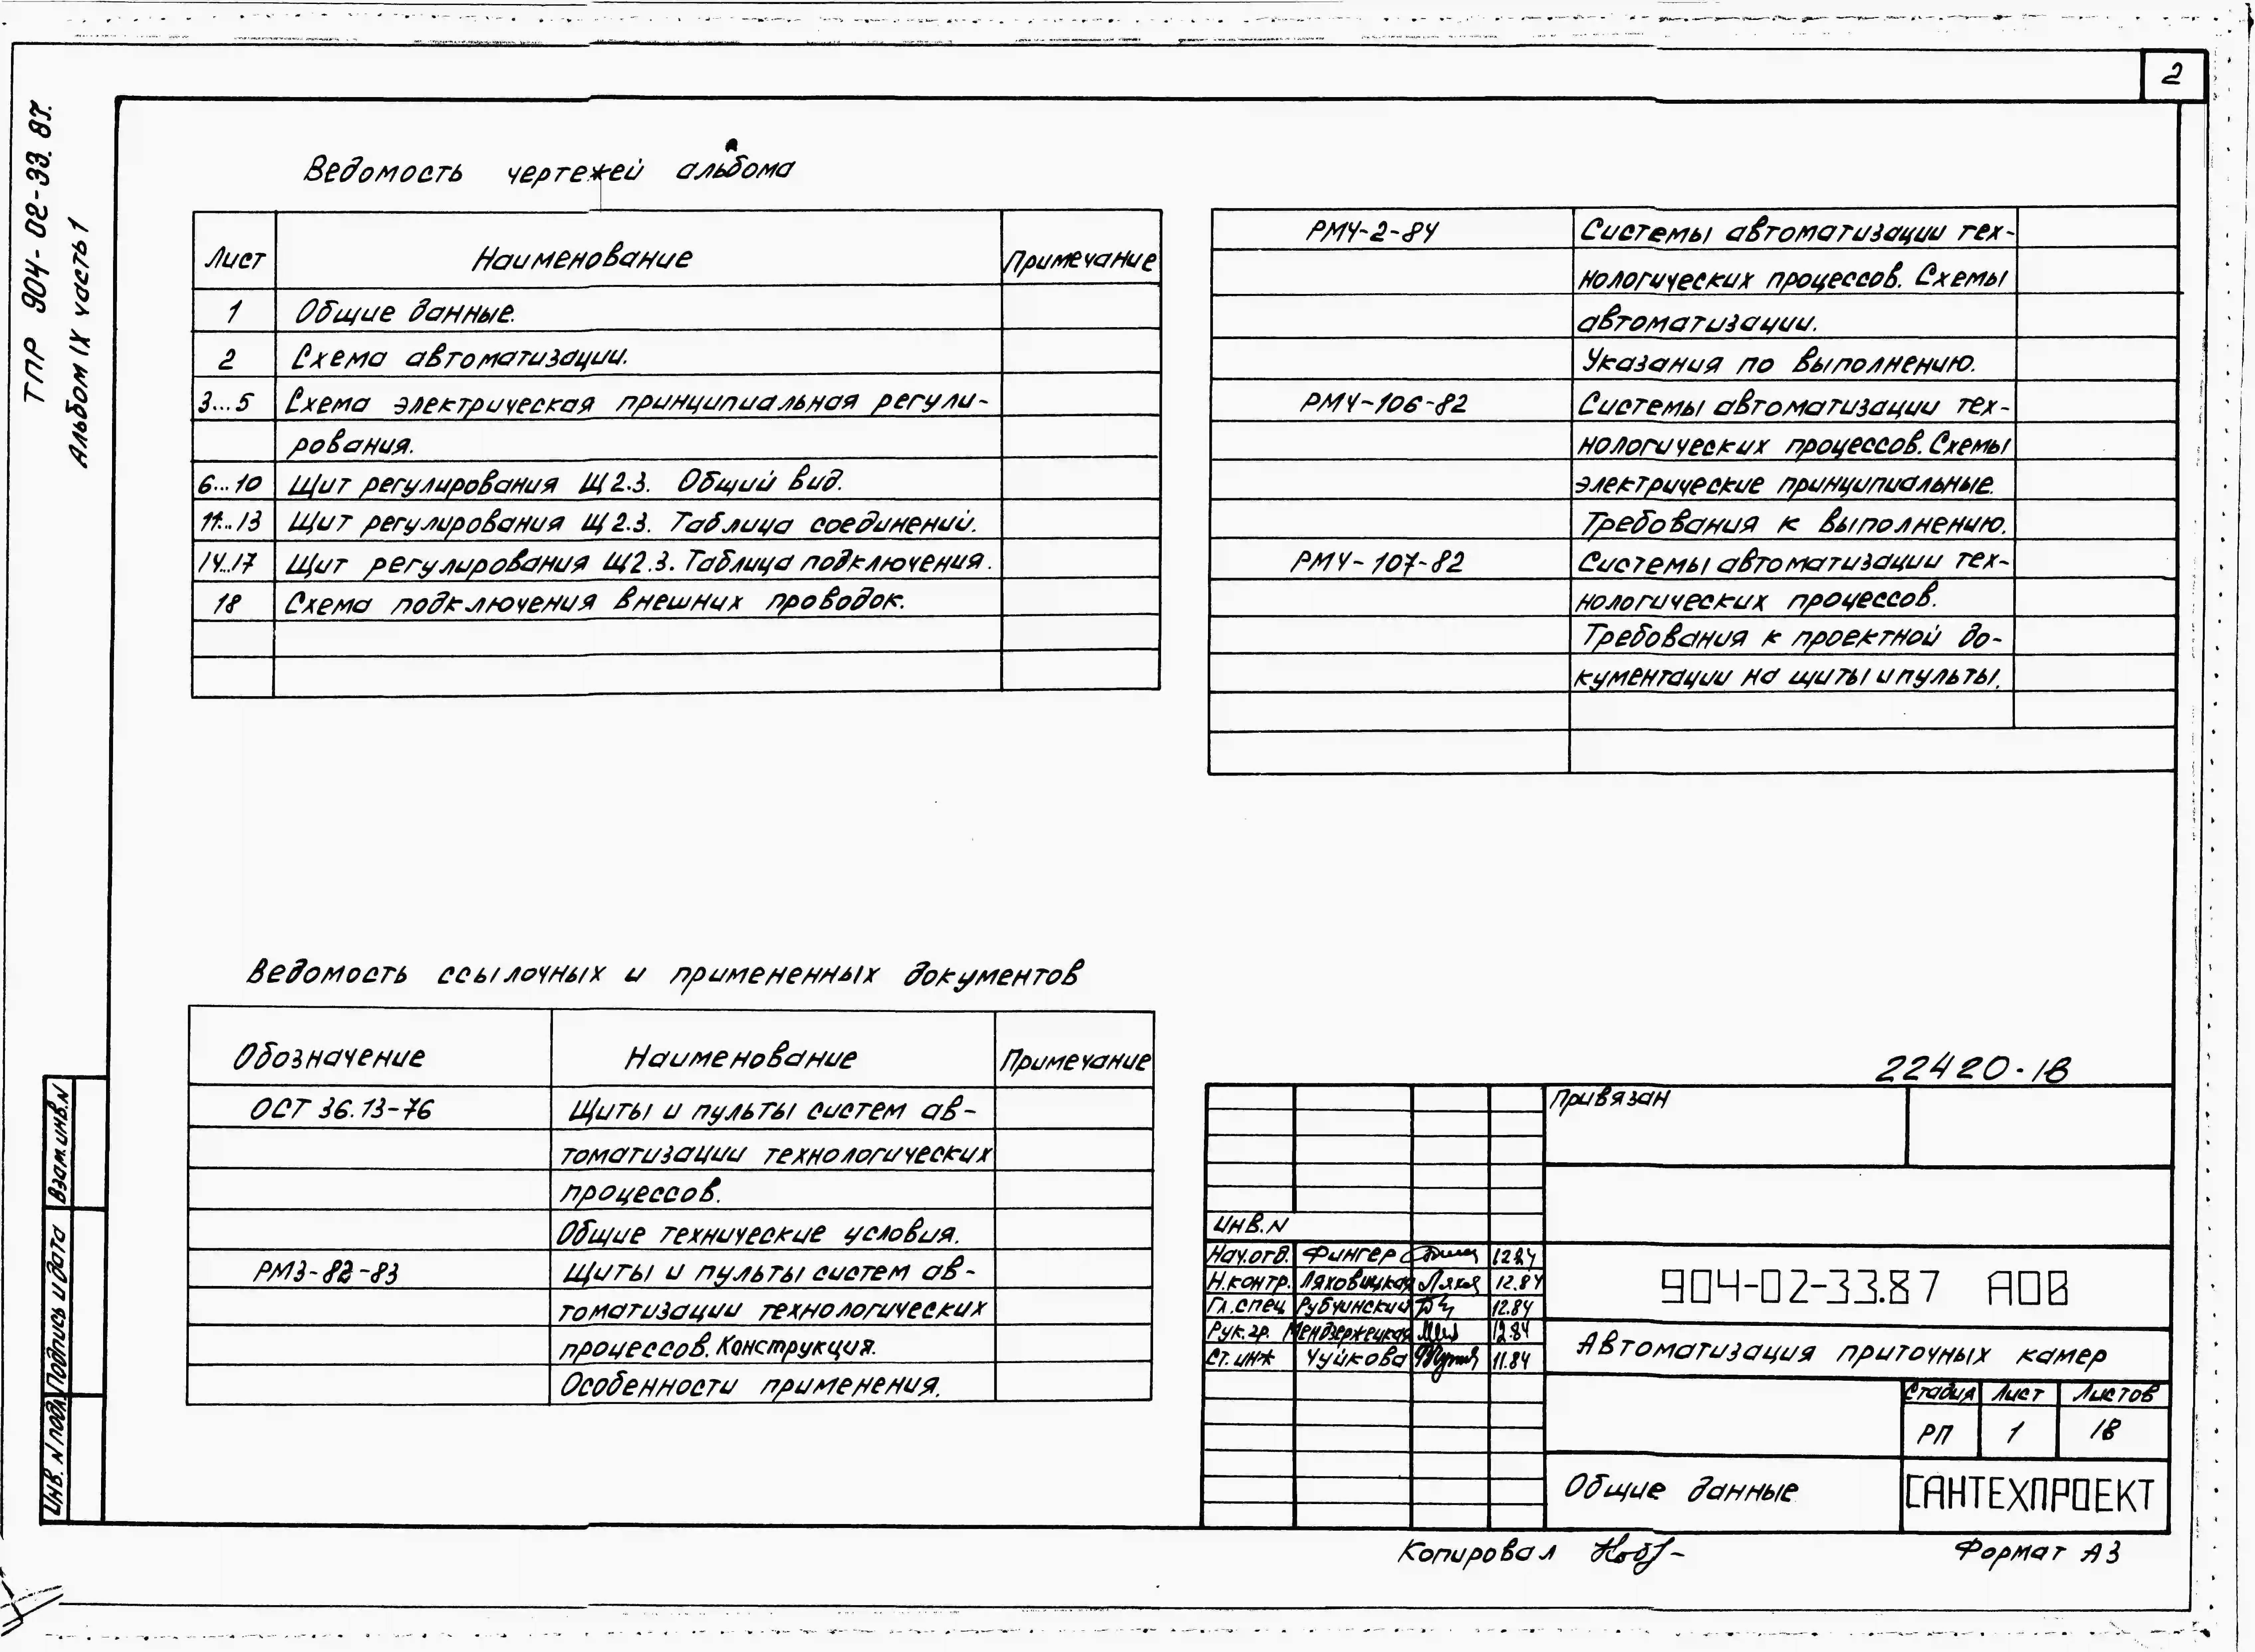 2
ТПР 904-02-33.87.
Альбом IX часть 1
Ведомость чертежей альбома
Лист Наименование Примечание
1 Общие данные.
2 Схема автоматизации.
3...5 Схема электрическая принципиальная регули-
рования.
6...10 Щит регулирования Щ2.3. Общий вид.
11...13 Щит регулирования Щ2.3. Таблица соединений.
14...17 Щит регулирования Щ2.3. Таблица подключения.
18 Схема подключения внешних проводок.
РМ4-2-84 Системы автоматизации тех-
нологических процессов. Схемы
автоматизации.
Указания по выполнению.
РМ4-106-82 Системы автоматизации тех-
нологических процессов. Схемы
электрические принципиальные.
Требования к выполнению.
РМ4-107-82 Системы автоматизации тех-
нологических процессов.
Требования к проектной до-
кументации на щиты и пульты.
Ведомость ссылочных и примененных документов
Обозначение Наименование Примечание
ОСТ 36.13-76 Щиты и пульты систем ав-
томатизации технологических
процессов.
Общие технические условия.
РМ3-82-83 Щиты и пульты систем ав-
томатизации технологических
процессов. Конструкция.
Особенности применения.
Взам. инв. N
Подпись и дата
Инв. N подл.
22420-18
Привязан
Инв. N
Нач. отд. Фингер 12.84
Н. контр. Ляховицкая 12.84
Гл. спец Рубчинский 12.84
Рук. гр. Мендзержецкая 12.84
Ст. инж Чуйкова 11.84
904-02-33.87 АОВ
Автоматизация приточных камер
Стадия Лист Листов
РП 1 18
Общие данные
САНТЕХПРОЕКТ
Копировал
Формат А3